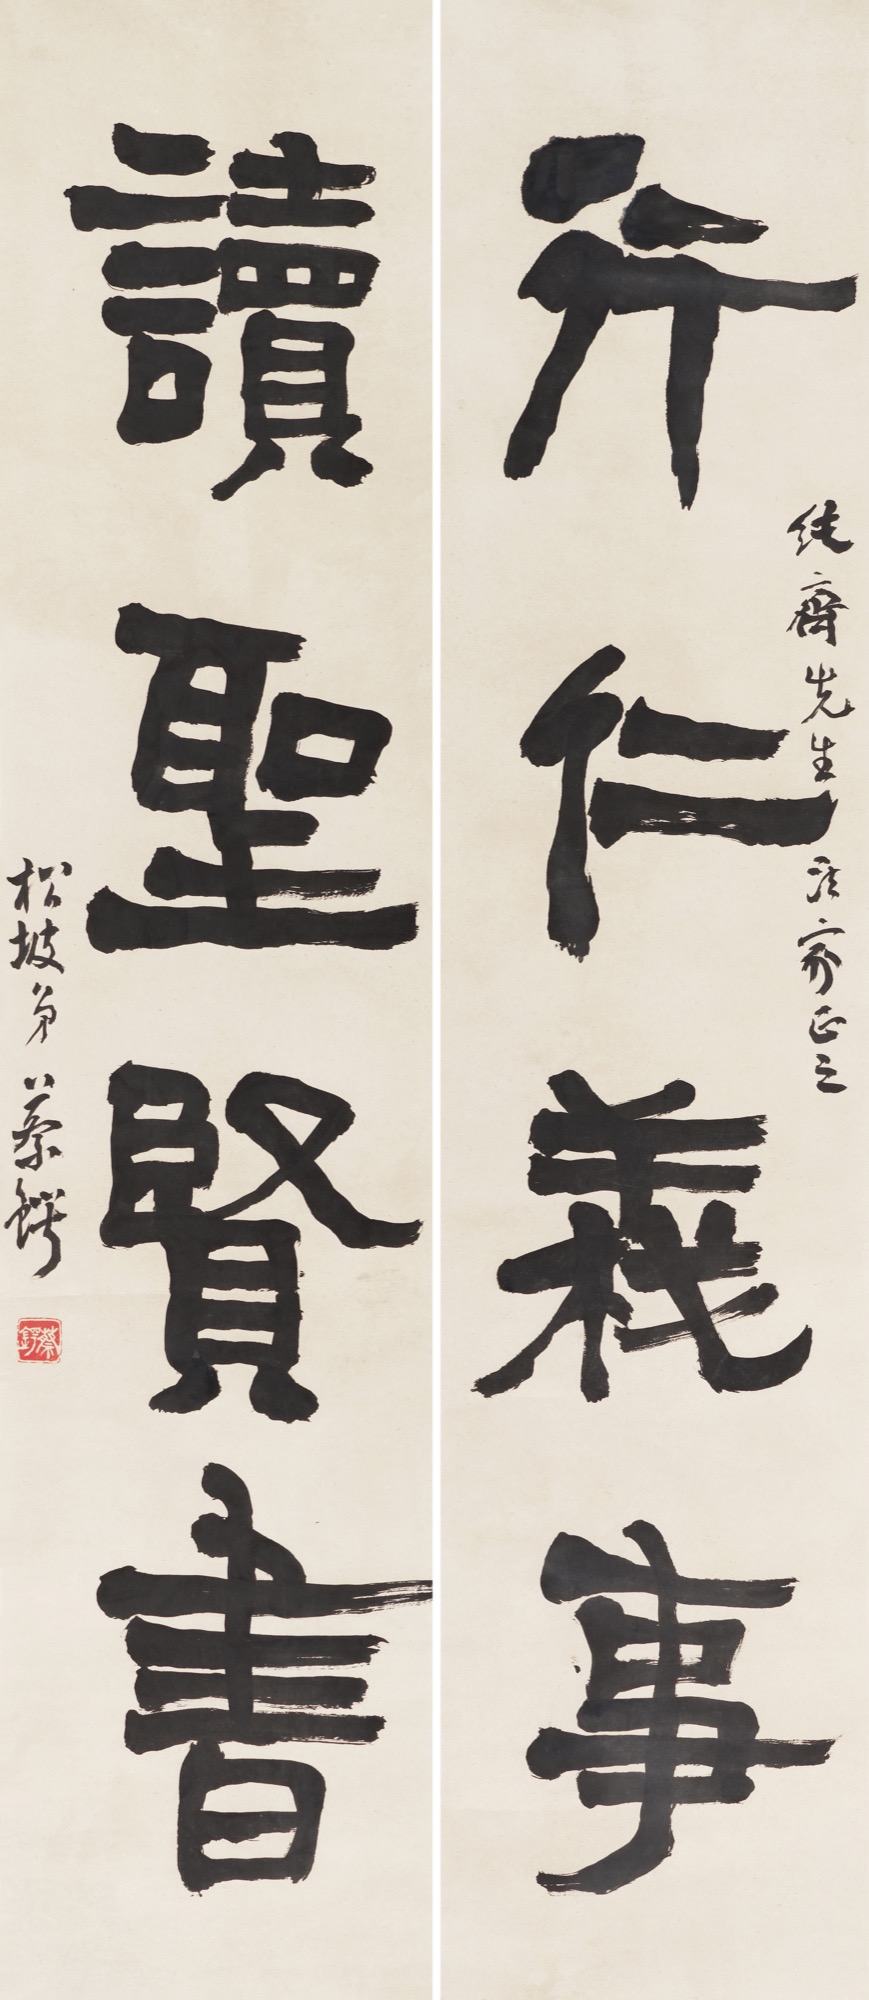 行仁義事
純齋先生法家正之
讀聖賢書
松坡弟蔡鍔
蔡鍔